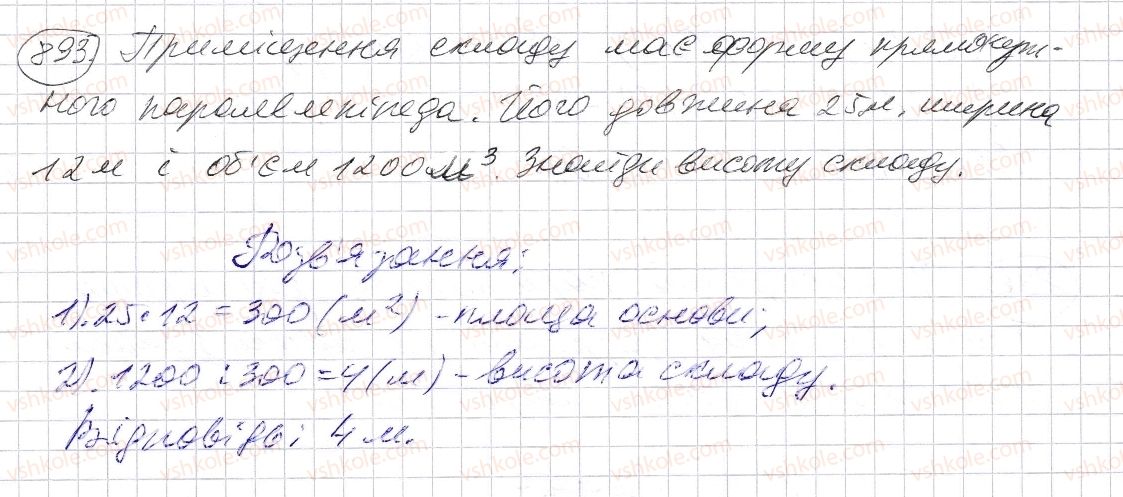 893. Приміщення складу має форму прямокут-
ного паралелепіпеда. Його довжина 25м, ширина
12м і об'єм 1200 м³. Знайди висоту складу.
Розв'язання:
1). 25 · 12 = 300 (м²) - площа основи;
2). 1200 : 300 = 4 (м) - висота складу.
Відповідь: 4 м.